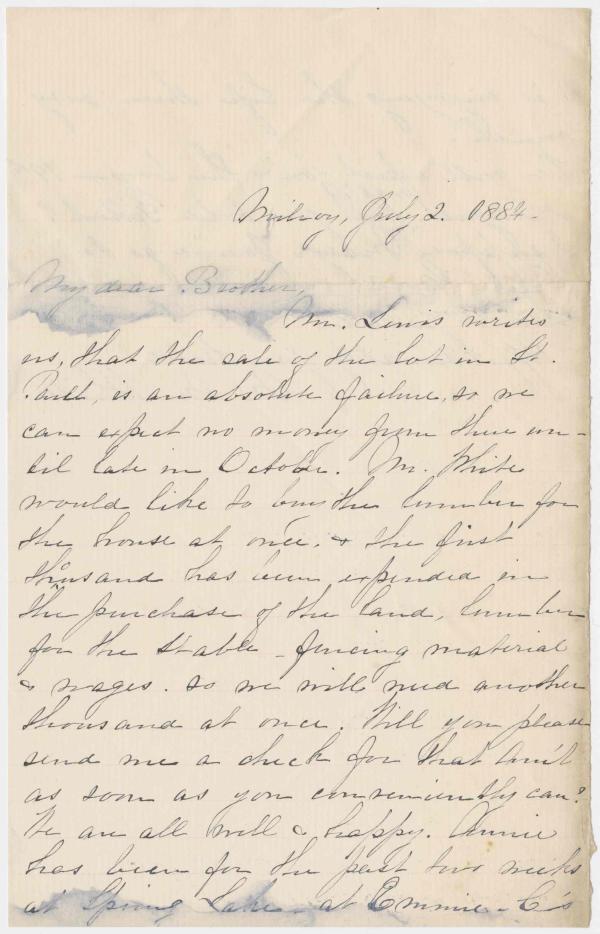 Milroy, July 2. 1884.
My dear Brother,
Mr. Lewis writes
us, that the sale of the lot in St.
Paul, is an absolute failure, so we
can expect no money from there un-
til late in October. Mr. White
would like to buy the lumber for
the house at once. & the first
thousand has been expended in
the purchase of the land, lumber
for the stable - fencing material
& wages. so we will need another
thousand at once. Will you please
send me a check for that am't
as soon as you conveniently can?
We are all well & happy. Annie
has been for the past two weeks
at Spring Lake - at Emmie - C's